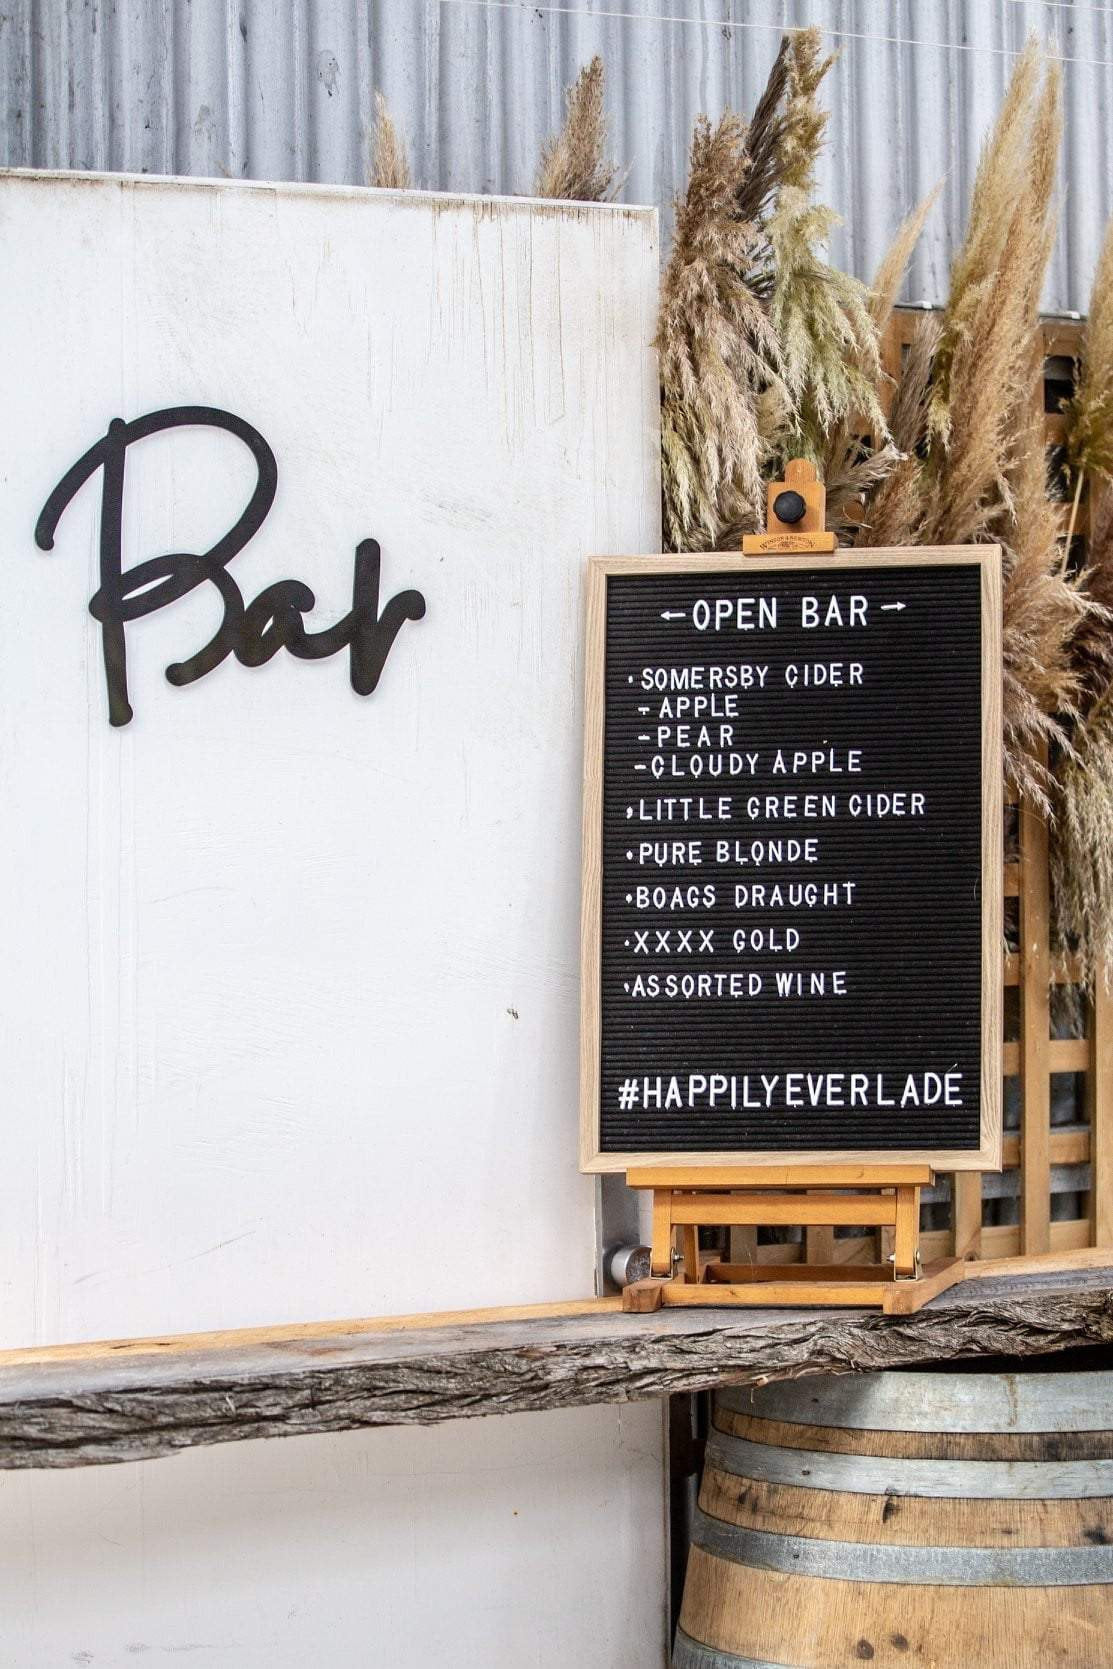 Bar
WINSOR & NEWTON
←OPEN BAR→
•SOMERSBY CIDER
-APPLE
-PEAR
-CLOUDY APPLE
•LITTLE GREEN CIDER
•PURE BLONDE
•BOAGS DRAUGHT
•XXXX GOLD
•ASSORTED WINE
#HAPPILYEVERLADE